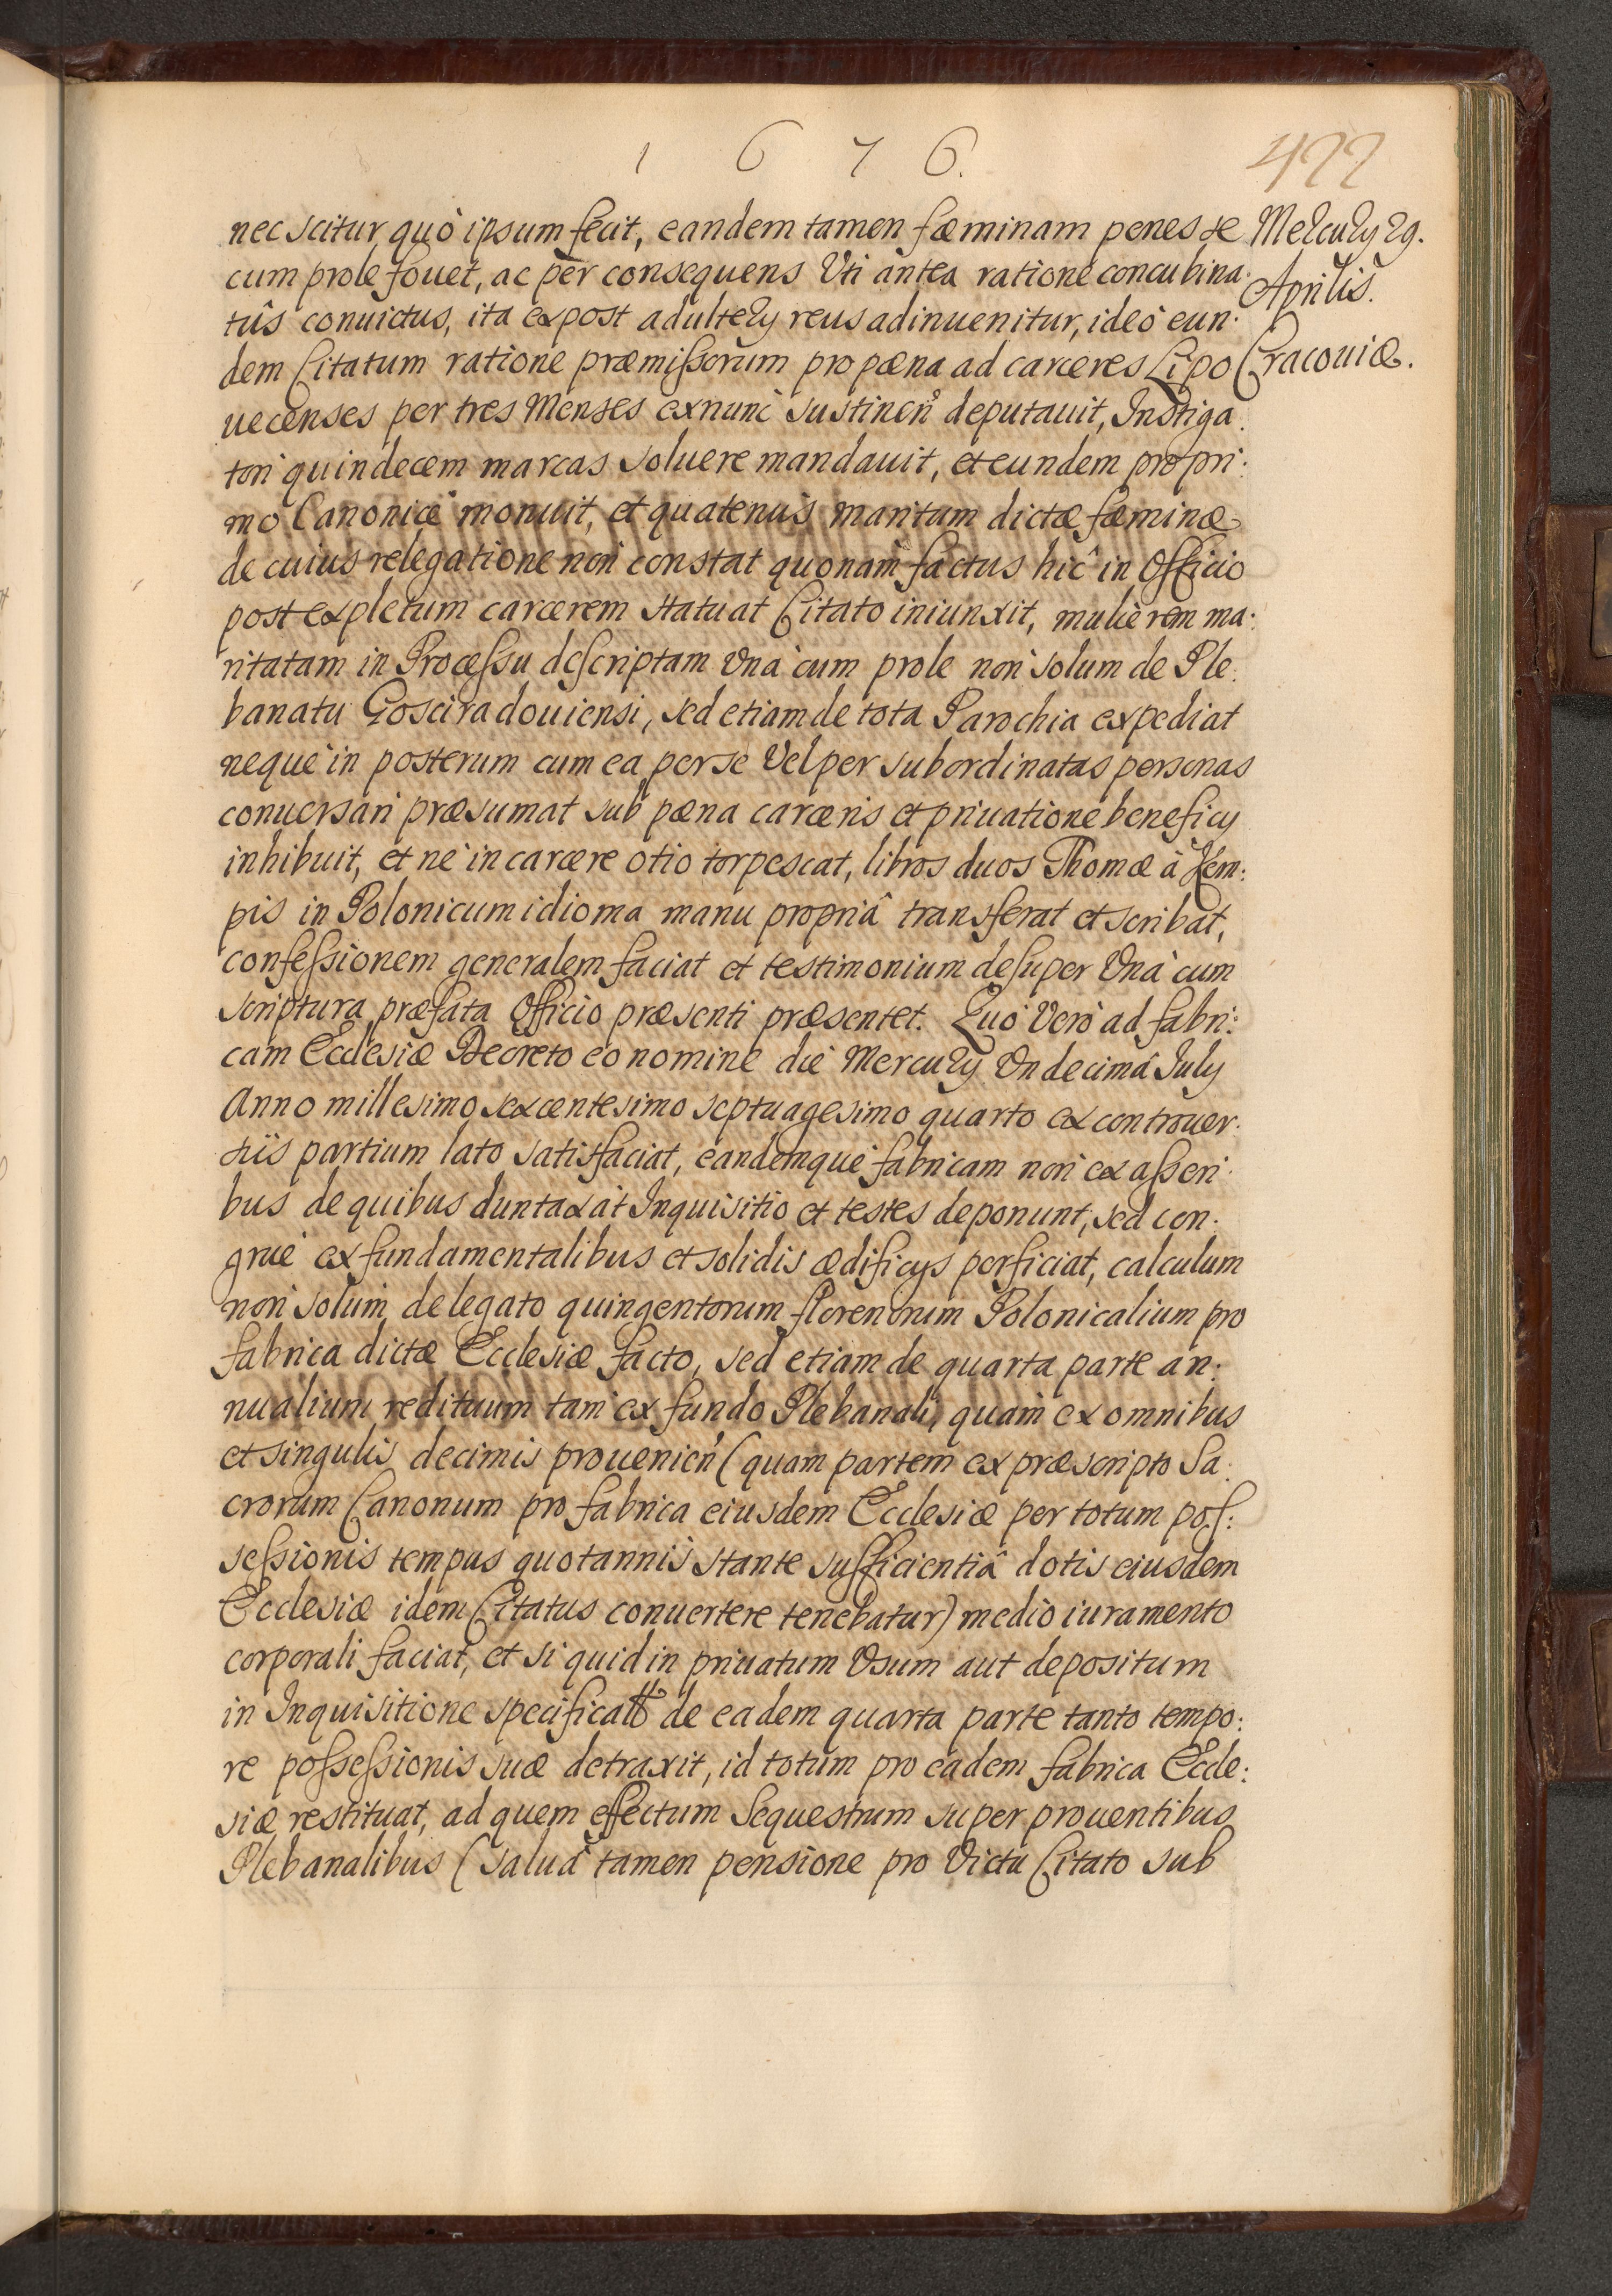 1 6 7 6.
477
nec scitur quò ipsum fecit, eandem tamen fæminam penes se
cum prole fouet, ac per consequens Vti antea ratione concubina:
tûs conuictus, ita ex post adultery reus adinuenitur, ideò eun:
dem Citatum ratione præmissorum pro pæna ad carceres Lipo
uecenses per tres Menses ex nunc sustinen deputauit, Instiga:
tori quindecem marcas soluere mandauit, et eundem pro pri:
mo Canonicè monuit, et quatenus maritum dictæ fæminæ
de cuius relegatione non constat quonam factus hic in Officio
post expletum carcerem statuat Citato iniunxit, mulierem ma:
ritatam in Processu descriptam Vnà cum prole non solum de Ple:
banatu Gosciradouiensi, sed etiam de tota Parochia expediat
neque in posterum cum ea per se Vel per subordinatas personas
conuersari præsumat sub pæna carceris et priuatione beneficy
inhibuit, et nè in carcere otio torpescat, libros duos Thomæ à Kem:
pis in Polonicum idioma manu propriâ transferat et scribat,
confessionem generalem faciat et testimonium desuper Vnà cum
scriptura præfata Officio præsenti præsentet. Quò Verò ad fabri:
cam Ecclesiæ Decreto eo nomine die Mercury Vndecimâ July
Anno millesimo sexcentesimo septuagesimo quarto ex controuer:
siis partium lato satisfaciat, eandemque fabricam non ex asseri:
bus de quibus duntaxat Inquisitio et testes deponunt, sed con:
gruè ex fundamentalibus et solidis ædificys perficiat, calculum
non solum de legato quingentorum florenorum Polonicalium pro
fabrica dictæ Ecclesiæ facto, sed etiam de quarta parte an:
nualium redituum tam ex fundo Plebanali, quam ex omnibus
et singulis decimis prouenien (quam partem ex præscripto Sa:
crorum Canonum pro fabrica eiusdem Ecclesiæ per totum pos:
sessionis tempus quotannis stante sufficientiâ dotis eiusdem
Ecclesiæ idem Citatus conuertere tenebatur) medio iuramento
corporali faciat, et si quid in priuatum Vsum aut depositum
in Inquisitione de eadem quarta parte tanto tempo:
re possessionis suæ detraxit, id totum pro eadem fabrica Eccle:
siæ restituat, ad quem effectum Sequestrum super prouentibus
Plebanalibus (saluâ tamen pensione pro Victu Citato sub
Mercury 29.
Aprilis.
Cracouiæ.